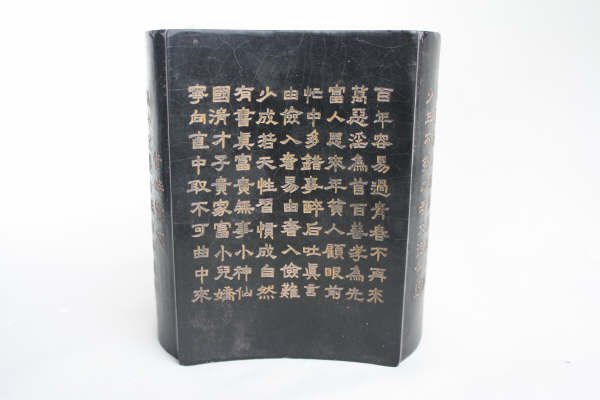 百年容易過青春不再来
萬惡淫為首百善孝為先
富人思來年貧人顧眼前
忙中多錯事醉后吐眞言
由儉入奢易由奢入儉難
少成若天性習慣成自然
有書眞富貴無事小神仙
國清才子貴家富小兒嬌
寧向直中取不可曲中來